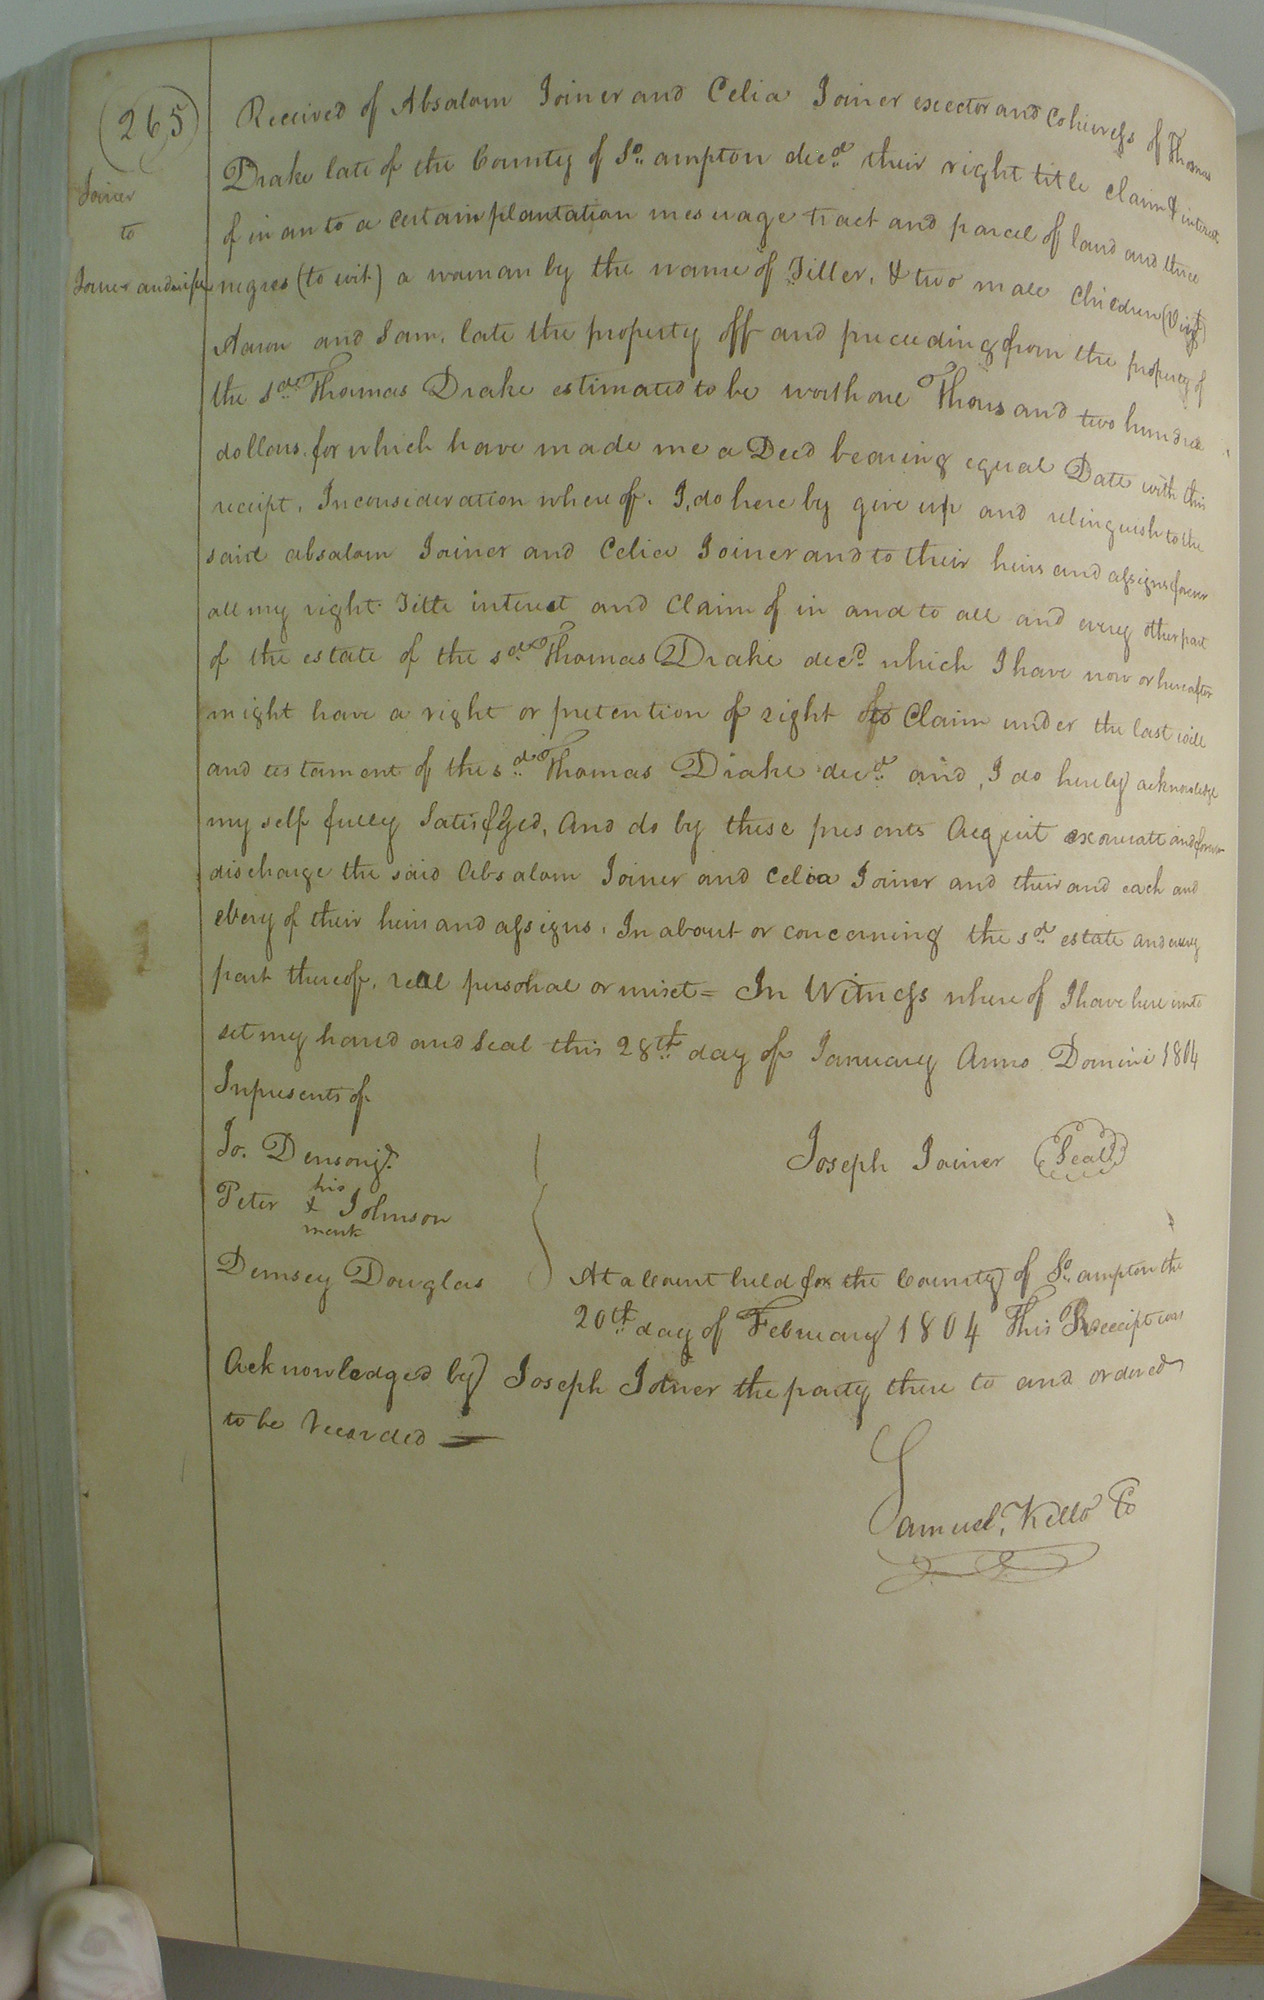 265
Joiner
to
Joiner and wife
Received of Absalom Joiner and Celia Joiner exector and coheiress of Thomas
Drake late of the County of So. ampton decd. their right title claim & interest
of in an to a certain plantation mesuage tract and parcel of land and three
negros (to wit) a woman by the name of Tiller, & two male children (Vizt)
Aaron and Sam, late the property off and preceeding from the property of
the sd. Thomas Drake estimated to be worth one Thousand two hundred
dollons. for which have made me a Deed bearing equal Date with this
receipt, Inconsideration where of. I, do here by give up and relinguish to the
said absalom Joiner and Celia Joiner and to their heirs and assigns forever
all my right Title interest and Claim of in and to all and every other part
of the estate of the sd. Thomas Drake decd which I have now or hereafter
might have a right or pretention of right to Claim under the last will
and testament of the sd. Thomas Drake decd. and, I do hereby acknowledge
my self fully Satisfyed, And do by these presents Acquit exonerate and forever
discharge the said Absalom Joiner and Celia Joiner and their and each and
every of their heirs and assigns, In about or concerning the sd. estate and every
part thereof, real personal or mixet = In Witness where of I have here unto
set my hand and seal this 28th. day of January Anno Domini 1804
Inpresents of
Jo. Denson jr.
Joseph Joiner (Seal)
his
Peter + Johnson
mark
Demsey Douglas
At a Court held for the County of So. ampton the
20th. day of February 1804 This Receipt was
Acknowledged by Joseph Joiner the party there to and ordered
to be Recorded
Samuel, Kello Co